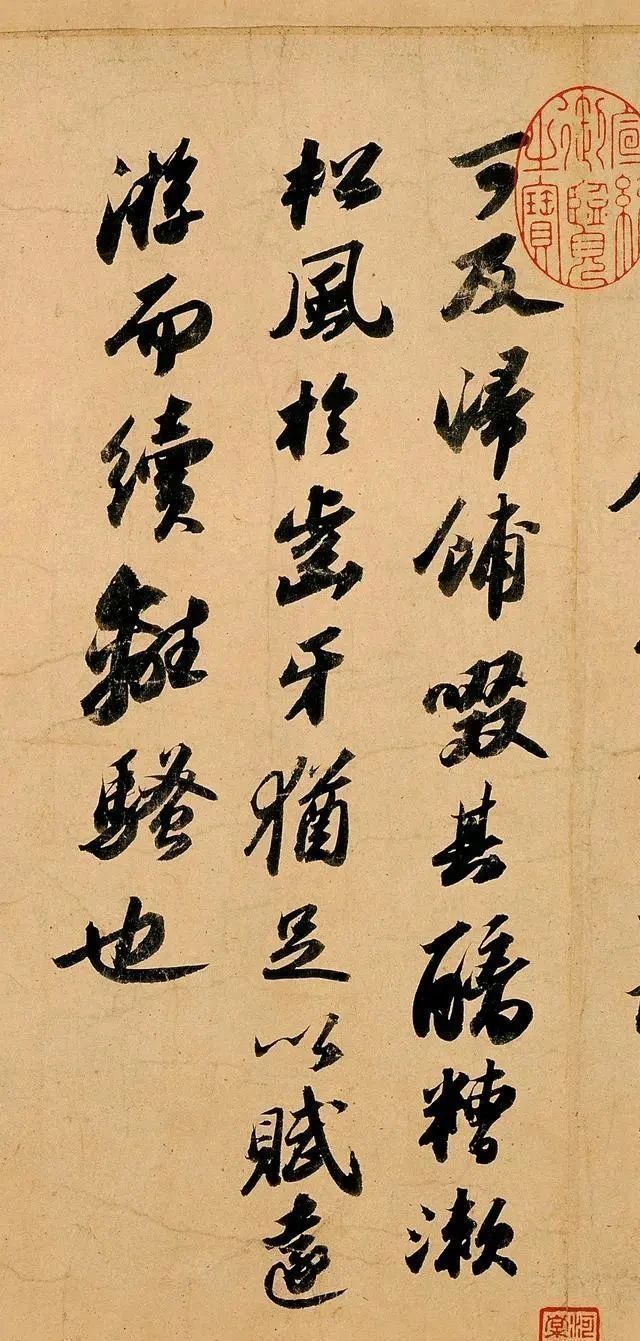 可及歸餔啜其醨糟漱
松風於齒牙猶足以賦遠
游而續離騷也
宣統御覽之寶